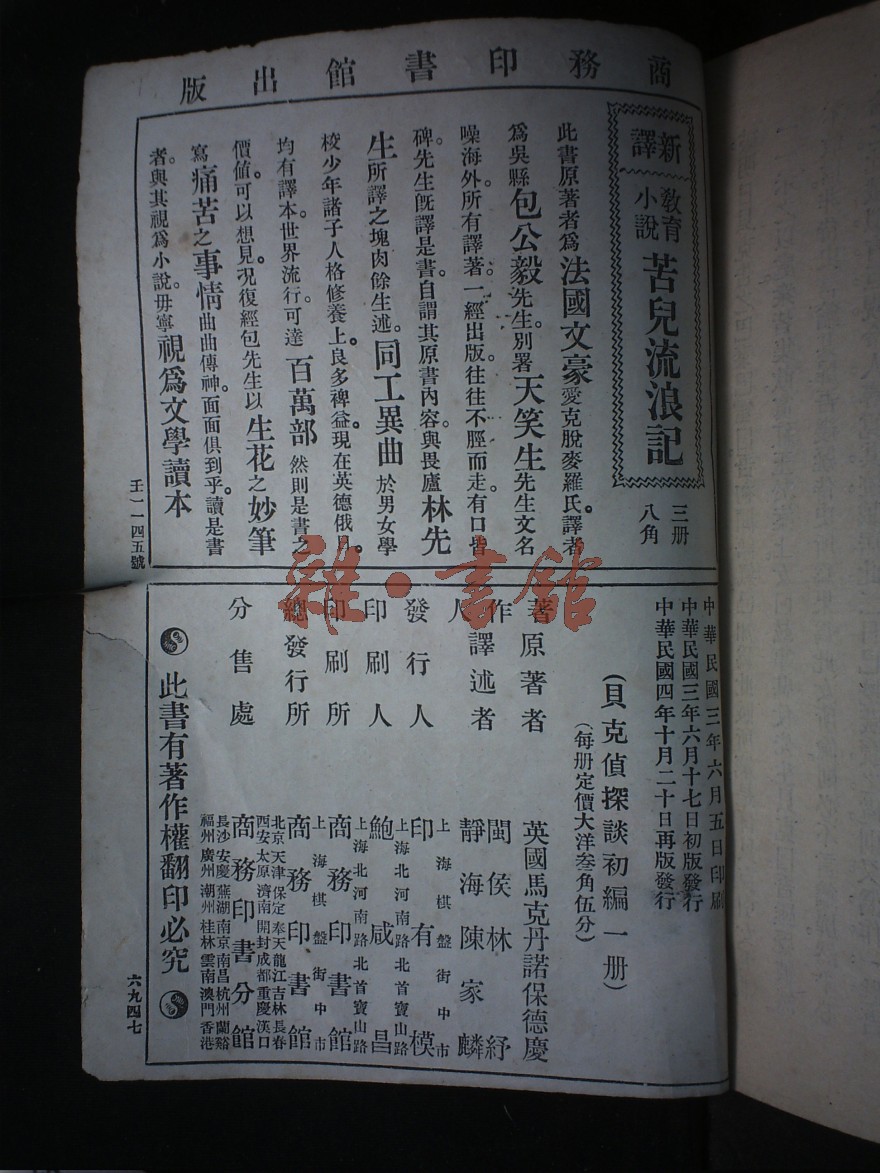 商務印書館出版
新譯
教育小說
苦兒流浪記
三册
八角
此書原著者爲法國文豪愛克脫麥羅氏。譯者
爲吳縣包公毅先生。別署天笑生先生文名
噪海外。所有譯著。一經出版。往往不脛而走。有口皆
碑。先生旣譯是書。自謂其原書內容。與畏廬林先
生所譯之塊肉餘生述。同工異曲於男女學
校少年諸子人格修養上。良多裨益。現在英德俄日。
均有譯本。世界流行。可達百萬部然則是書之
價値。可以想見。况復經包先生以生花之妙筆
寫痛苦之事情曲曲傳神。面面俱到乎。讀是書
者。與其視爲小說。毋寧視爲文學讀本
壬一一四五號
中華民國三年六月五日印刷
中華民國三年六月十七日初版發行
中華民國四年十月二十日再版發行
(貝克偵探談初編一册)
(每册定價大洋叁角伍分)
著作人
原著者 英國馬克丹諾保德慶
譯述者 閩侯林紓
靜海陳家麟
發行人 印有模
上海棋盤街中市
印刷人 鮑咸昌
上海北河南路北首寶山路
印刷所 商務印書館
上海北河南路北首寶山路
總發行所 商務印書館
上海棋盤街中市
分售處 商務印書分館
北京天津保定奉天龍江吉林長春
西安太原濟南開封成都重慶漢口
長沙安慶蕪湖南京南昌杭州蘭谿
福州廣州潮州桂林雲南澳門香港
此書有著作權翻印必究
六九四七
雜·書館